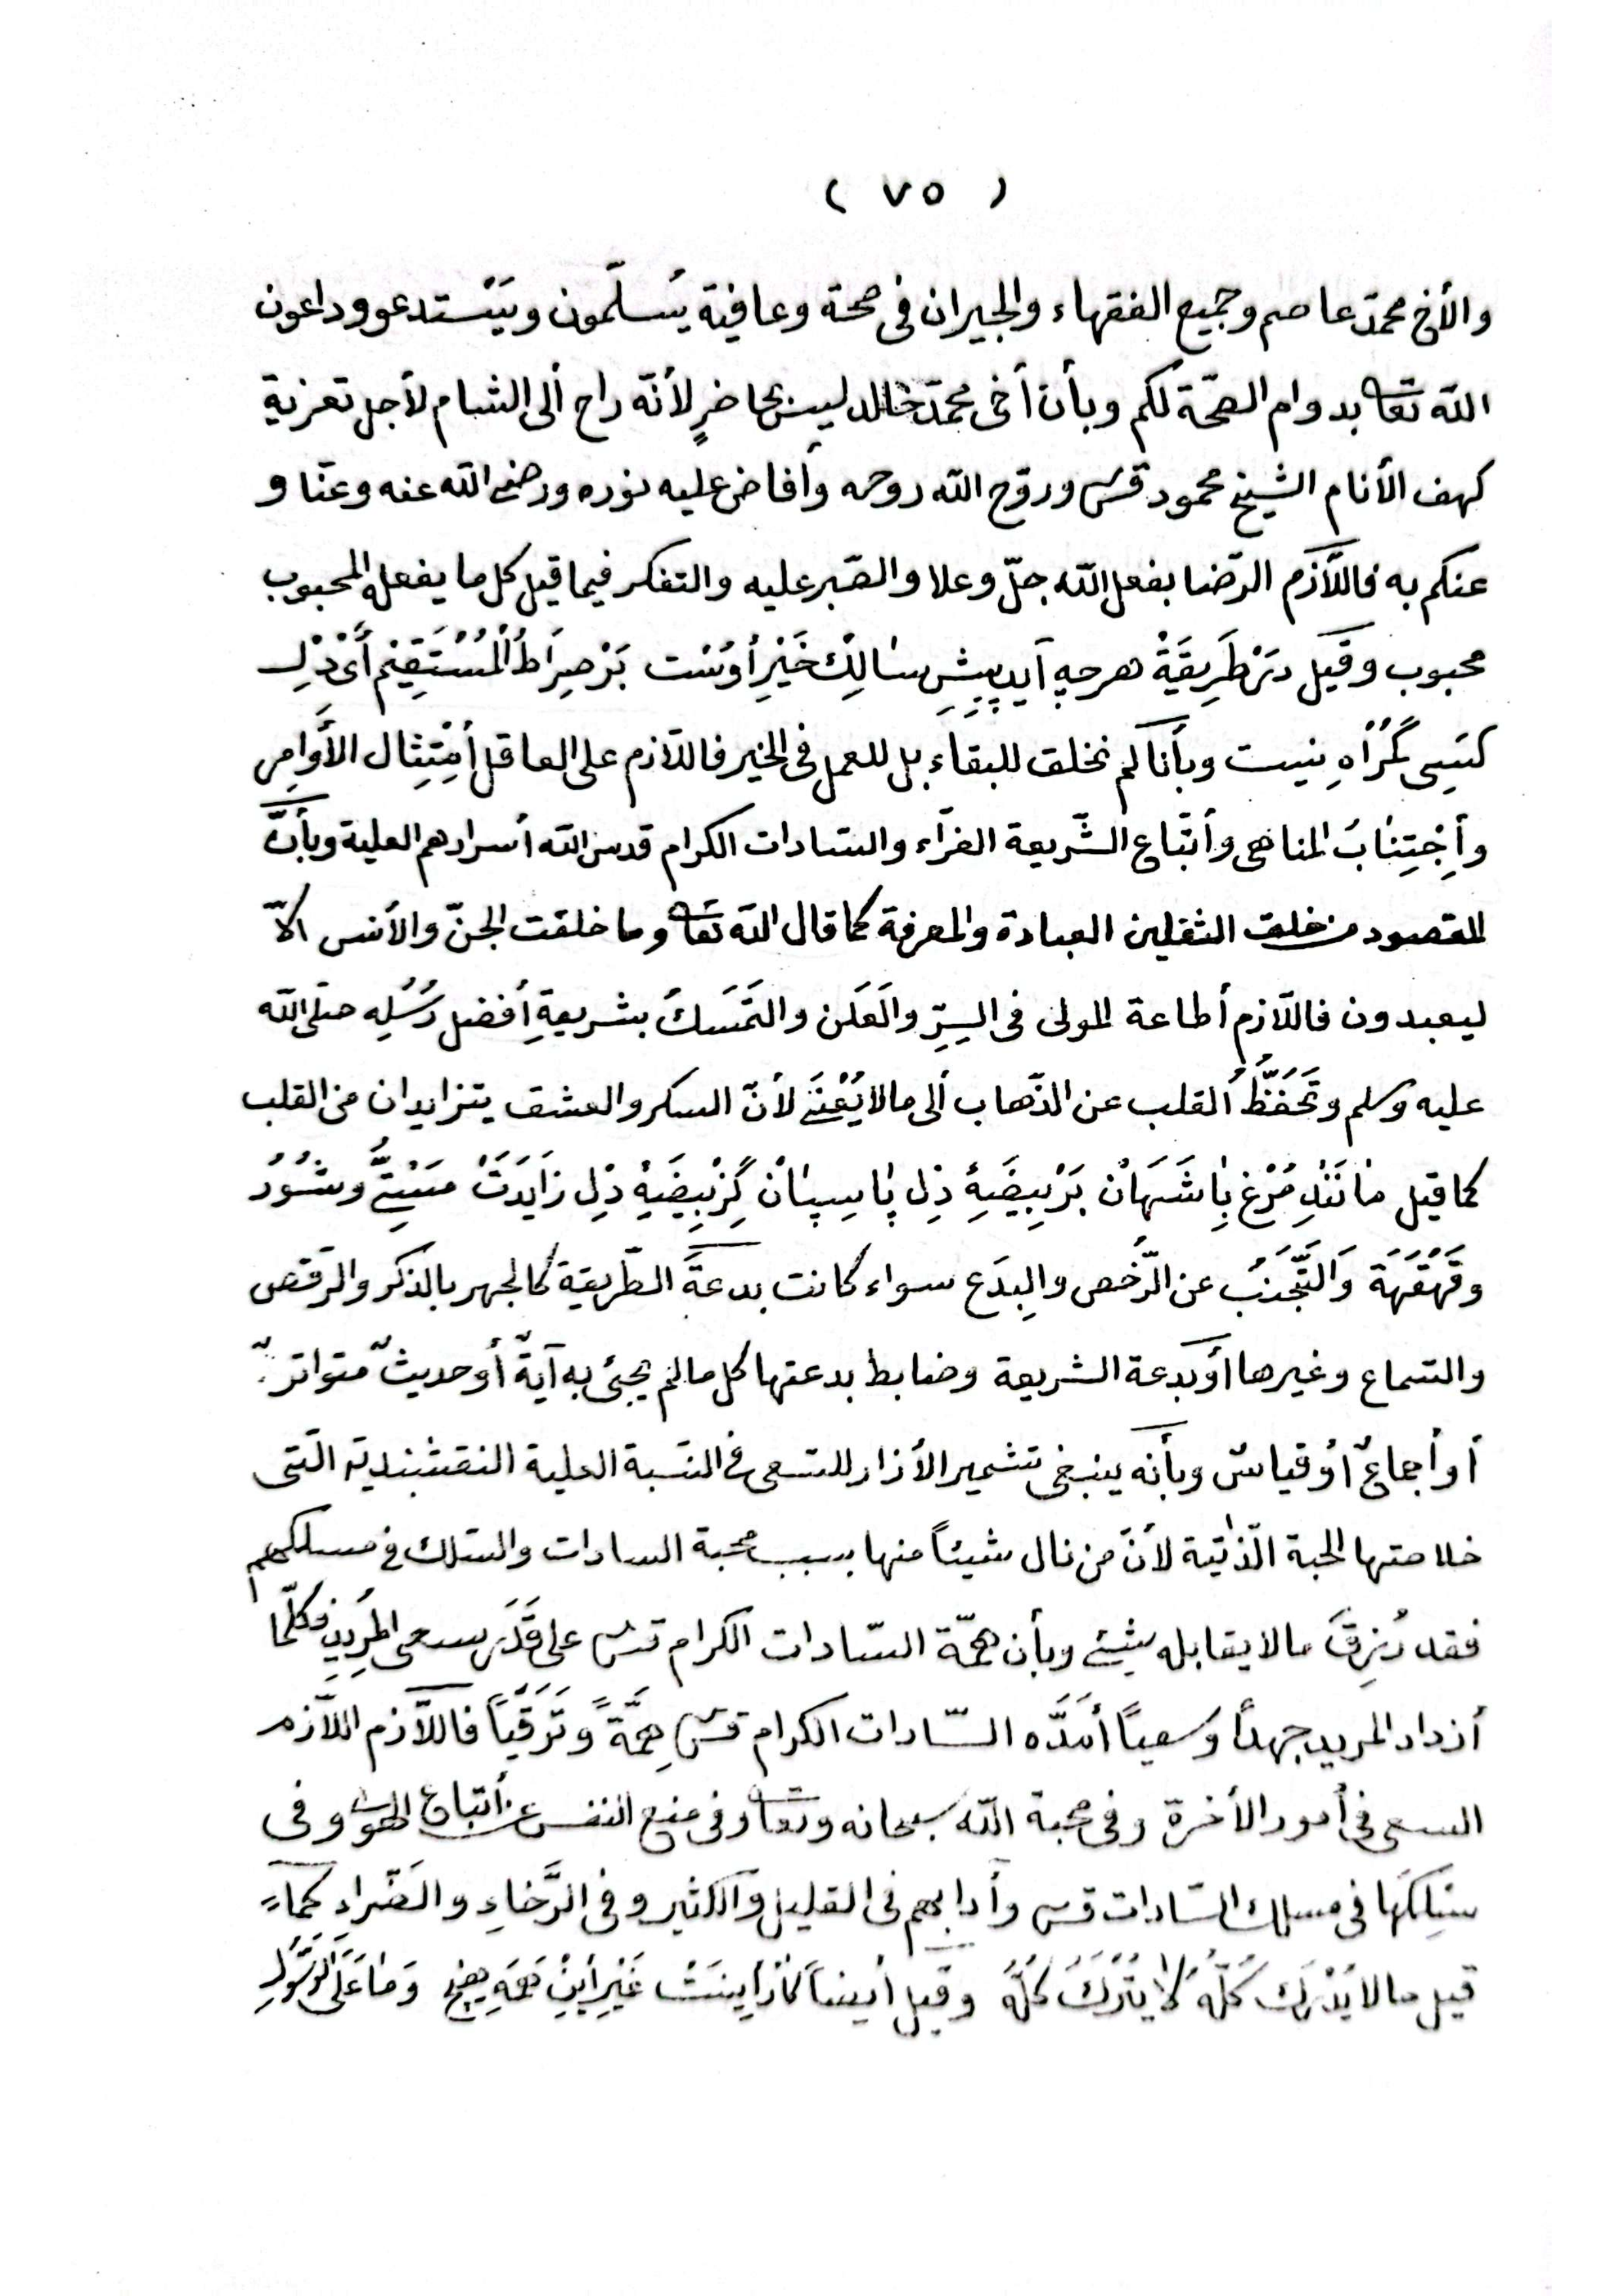 ( ٧٥ )
والأخ محمد عاصم وجميع الفقهاء والجيران فى صحة وعافية يسلّمون ويَسْتدعو وداعون
الله تعا بدوام الصحّة لكم وبأن أخى محمّد خالد ليس بحاضرٍ لأنّه راح ألى الشام لأجل تعزية
كهف الأنام الشيخ محمود قس وروّح الله روحه وأفاض عليه نوره ورضى الله عنه وعنّا و
عنكم به فاللّازم الرّضا بفعل الله جلّ وعلا والصّبر عليه والتفكر فيما قيل كل ما يفعله المحبوب
محبوب وقيل دَرْ طَرِيقَةْ هرچه آيد پِيشِ سٰالِكْ خَيْرِ أوسْت بَرْ صِرَاطُ الْمُسْتَقِيم أَىْ دِلْ
كَسِى گُمْرٰاهِ نيست وبأنا لم نخلق للبقاء بل للعمل فى الخير فاللّازم على العاقل أمْتِثِال الأَوامِر
وأِجْتِنٰابُ المناهى وأتّباع الشّريعة الغرّاء والسّادات الكرام قدس الله أسرارهم العلية وبأنَّ
المقصود من خلق الثقلين العبادة والمعرفة كما قال الله تعا وما خلقت الجنّ والأنس الاّ
ليعبدون فاللّازم أطاعة المولى فى السِرِّ والعَلَن والتَمَسَكُ بشريعةِ أفضل رُسُلِه صلى الله
عليه وسلم وتَحَفَّظُ القلب عن الذّهاب ألى مالا يُعْنَى لأنّ السكر والعشق يتزايدان من القلب
كما قيل مٰانَنْدِ مُرْغ بٰاشَهٰانْ بَرْ بِيضَهِٔ دِل پٰاسِبٰانْ كِزْ بِيضَهِٔ دِل زٰايَدَتْ مَسْتِىُّ وشُوُرُ
وقَهْقَهَة وَالتَّجَنّبُ عن الرّخَص والبِدَع سواء كانت بدعةَ الطّريقة كالجهر بالذكر والرّقص
والسّماع وغيرها أو بدعة الشريعة وضابط بدعتها كل مالم يجئ به آيةٌ أو حديثٌ متواترٌ
أو أجماعٌ أو قياسٌ وبأنّه ينبغى تشمير الأزار للسعى فى النّسبة العلية النقشبندية الّتى
خلاصتها المحبة الذّاتية لأنّ من نال شيئاً منها بسبب محبة السادات والسّلك فى مسلكهم
فقد رُزِقَ مالا يقابله شئ وبأن همّة السّادات الكرام قس على قَدَر سعى المرِيدِين فكلّما
أزداد المريد جهداً وسعياً أمَدَّه السّادات الكرام قس هِمَّةً وتَرَقّياً فاللّازم اللّازم
السعى فى أمور الأخرة وفى محبة الله سبحانه وتعا وفى منع النفس عن أتباع الهوى وفى
سَلكَها فى مسلك السّادات قس وأدابهم فى القليل والكثير وفى الرَّخاءِ والضَّراءِ كما
قيل مالا يُدْرَك كُلّهُ لاٰ يُتْرَكُ كُلَّهُ وقيل أيضاً كٰارْ أِينَسْتْ غَيْرِ أَيِنْ هَمَهِ هيچ وَمٰا عَلَى الرَّسُولِ